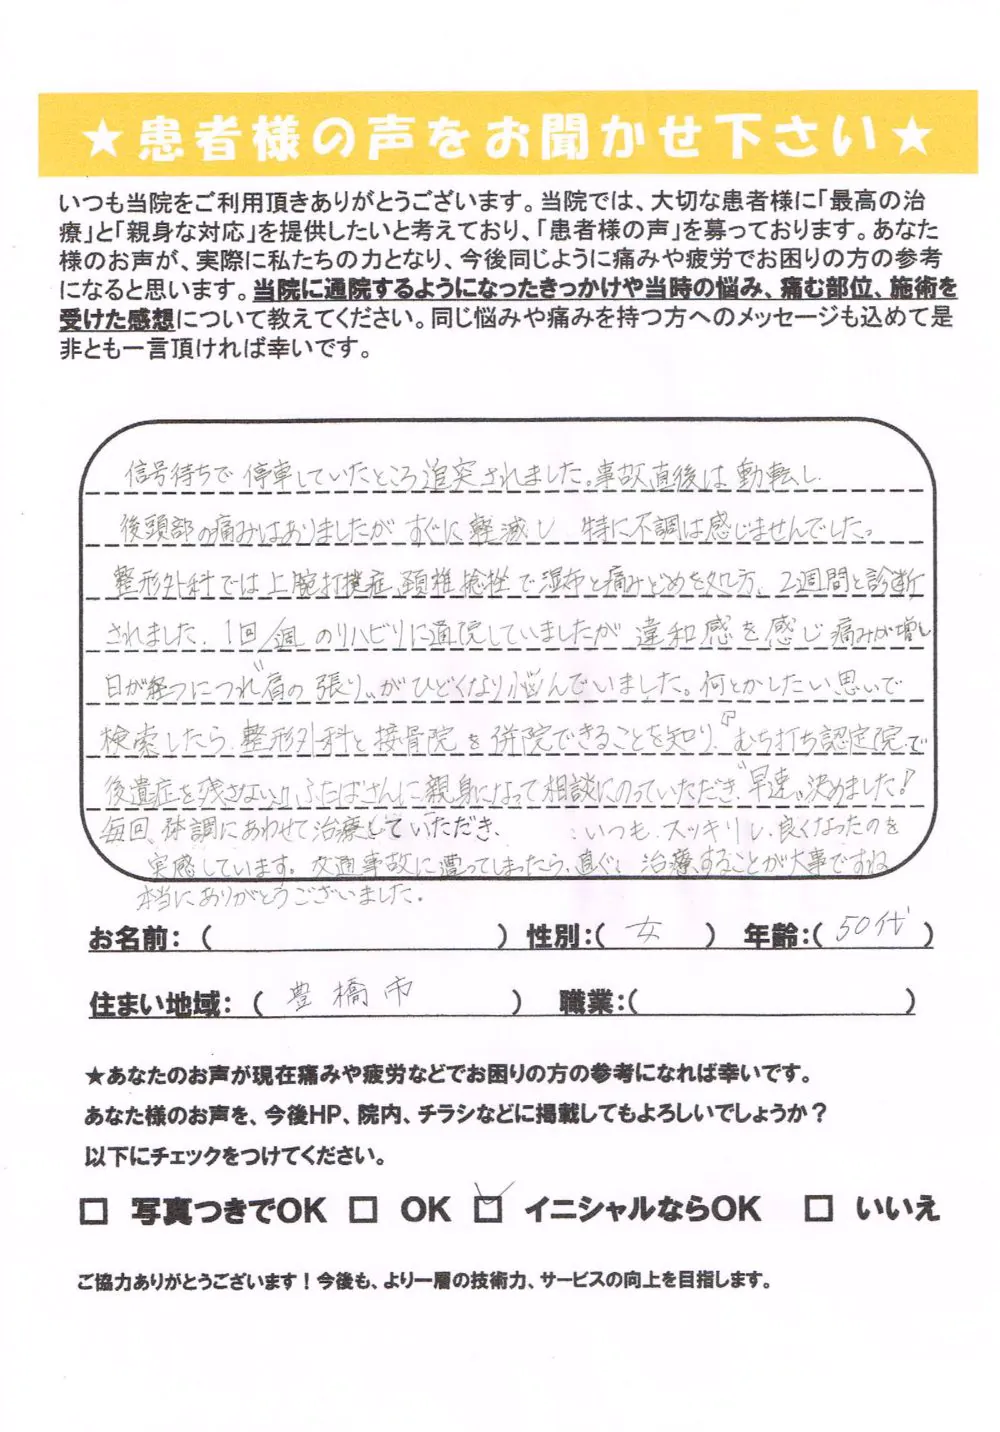 ★患者様の声をお聞かせ下さい★
いつも当院をご利用頂きありがとうございます。当院では、大切な患者様に「最高の治
療」と「親身な対応」を提供したいと考えており、「患者様の声」を募っております。あなた
様のお声が、実際に私たちの力となり、今後同じように痛みや疲労でお困りの方の参考
になると思います。当院に通院するようになったきっかけや当時の悩み、痛む部位、施術を
受けた感想について教えてください。同じ悩みや痛みを持つ方へのメッセージも込めて是
非とも一言頂ければ幸いです。
信号待ちで停車していたところ追突されました。事故直後は動転し
後頭部の痛みはありましたがすぐに軽減し 特に不調は感じませんでした。
整形外科では上腕打撲症、頚椎捻挫で湿布と痛みどめを処方、2週間と診断
されました。1回/週のリハビリに通院していましたが 違和感を感じ痛みが増し
日が経つにつれ"肩の張り"がひどくなり悩んでいました。何とかしたい思いで
検索したら、整形外科と接骨院を併院できることを知り、『むち打ち認定院で
後遺症を残さない』ふたばさんに親身になって相談にのっていただき"早速"決めました!
毎回、体調にあわせて治療していただき、 いつも、スッキリし、良くなったのを
実感しています。交通事故に遭ってしまったら、直ぐに治療することが大事ですね
本当にありがとうございました。
お名前:( ) 性別:( 女 ) 年齢:( 50代 )
住まい地域:( 豊橋市 ) 職業:( )
★あなたのお声が現在痛みや疲労などでお困りの方の参考になれば幸いです。
あなた様のお声を、今後HP、院内、チラシなどに掲載してもよろしいでしょうか?
以下にチェックをつけてください。
□ 写真つきでOK □ OK ☑ イニシャルならOK □ いいえ
ご協力ありがとうございます!今後も、より一層の技術力、サービスの向上を目指します。